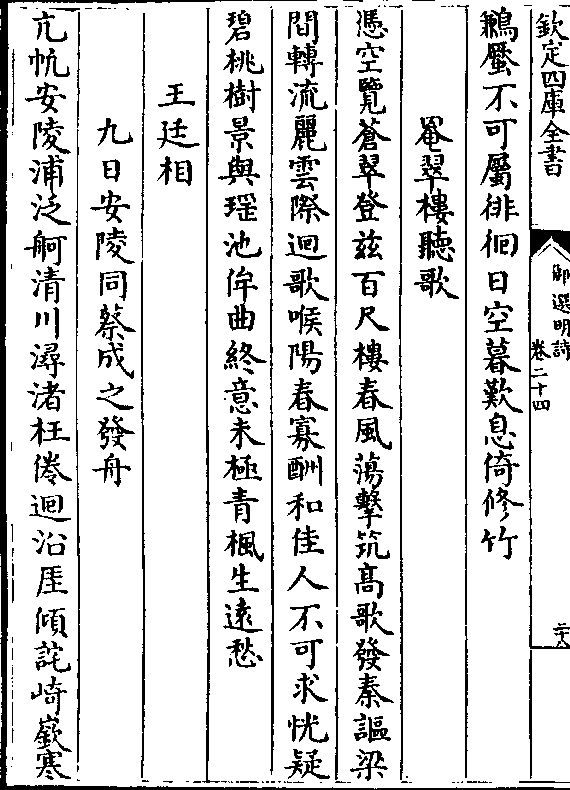 欽定四庫全書
御選明詩
卷二十四
二十八
鶼蟨不可屬徘徊日空暮歎息倚修竹
罨翠樓聽歌
憑空覽蒼翠登兹百尺樓春風蕩擊筑高歌發秦謳梁
間轉流麗雲際迴歌喉陽春寡酬和佳人不可求恍疑
碧桃樹景與瑶池侔曲終意未極青楓生遠愁
王廷相
九日安陵同蔡成之發舟
亢帆安陵浦泛舸清川潯渚枉倦迴沿厓傾詫崎嶔寒